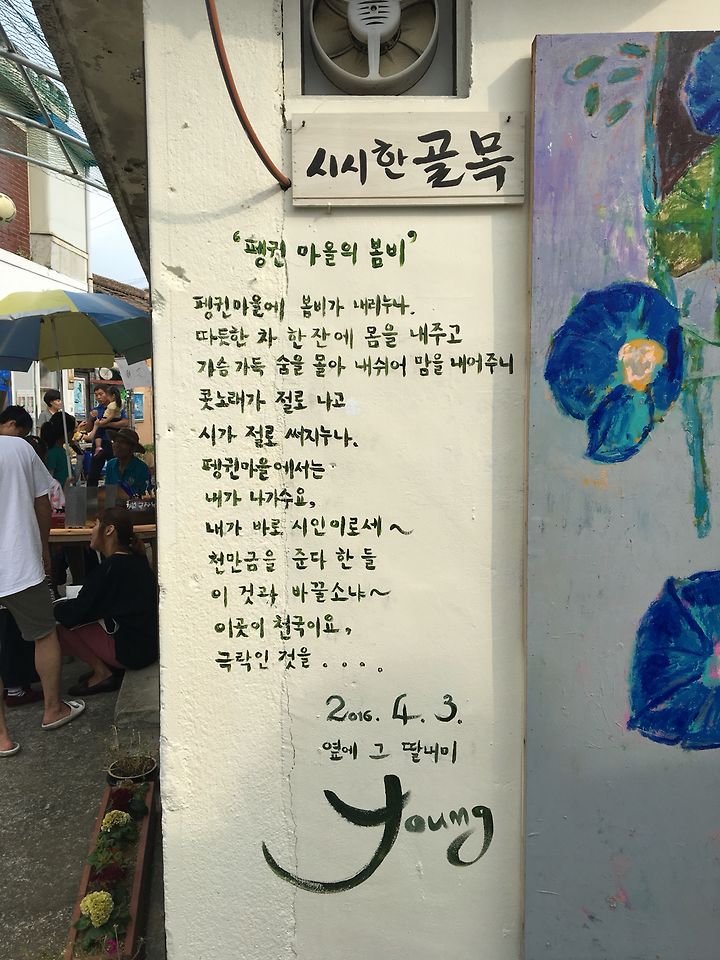 시시한 골목
'펭귄 마을의 봄비'
펭귄마을에 봄비가 내리누나.
따듯한 차 한 잔에 몸을 내주고
가슴 가득 숨을 몰아 내쉬어 맘을 내어주니
콧노래가 절로 나고
시가 절로 써지누나.
펭귄마을에서는
내가 나가수요,
내가 바로 시인이로세~
천만금을 준다 한 들
이 것과 바꿀소냐~
이곳이 천국이요,
극락인 것을 . . . .
2016. 4. 3.
옆에 그 딸내미
Young